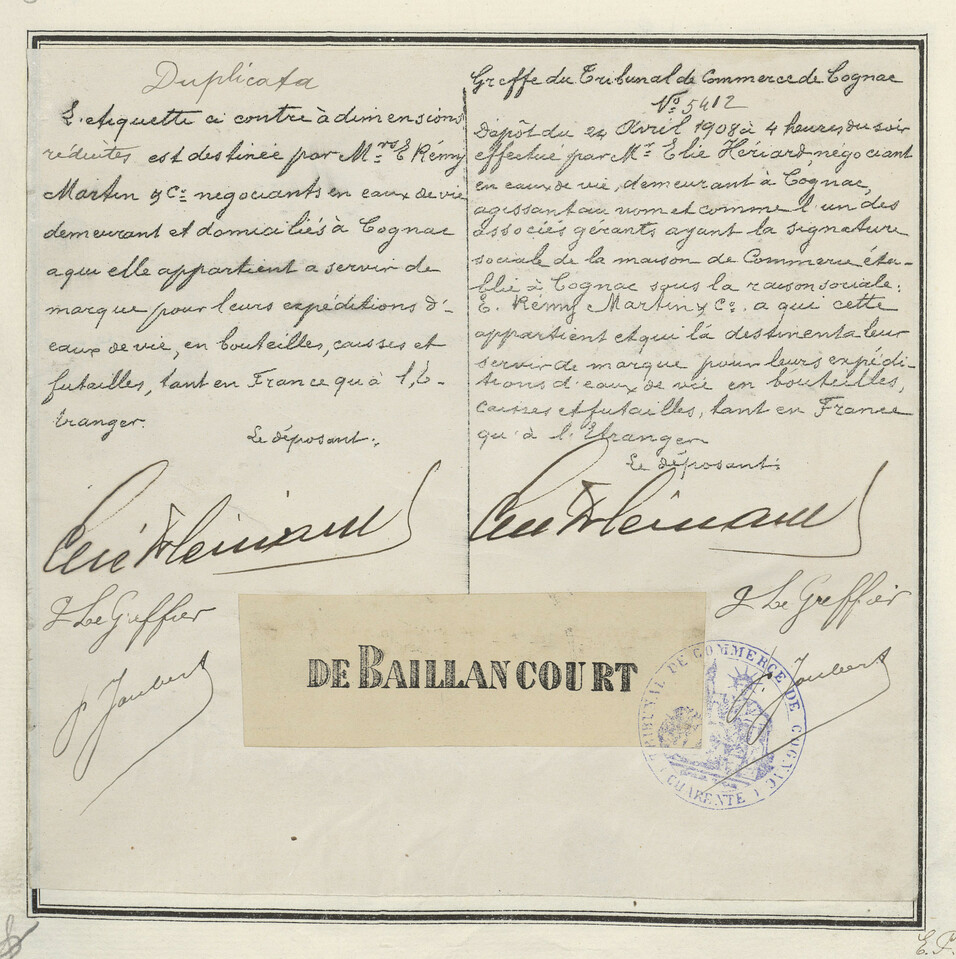 Duplicata
L'etiquette ci contre à dimensions
réduites est destinée par M.rs E Rémy
Martin & Cie negociants en eaux de vie
demeurant et domiciliés à Cognac
a qui elle appartient a servir de
marque pour leurs expéditions d'-
eaux de vie, en bouteilles, caisses et
futailles, tant en France qu'à l'E-
tranger.
Le déposant:
Elie Hériard
Le Greffier
Joubert
Greffe du Tribunal de Commerce de Cognac
No 5412
Dépôt du 24 Avril 1908 à 4 heures du soir
effectué par Mr. Elie Hériard, négociant
en eaux de vie, demeurant à Cognac,
agissant au nom et comme l'un des
associés gérants ayant la signature
sociale de la maison de Commerce éta-
blie à Cognac sous la raison sociale:
E. Rémy Martin & Co. a qui cette
appartient et qui l'a destinent a leur
servir de marque pour leurs expédi-
tions d'eaux de vie en bouteilles,
caisses et futailles, tant en France
qu'à l'Etranger
Le déposant:
Elie Hériard
Le Greffier
Joubert
DE BAILLANCOURT
TRIBUNAL DE COMMERCE DE COGNAC
CHARENTE
E.P.